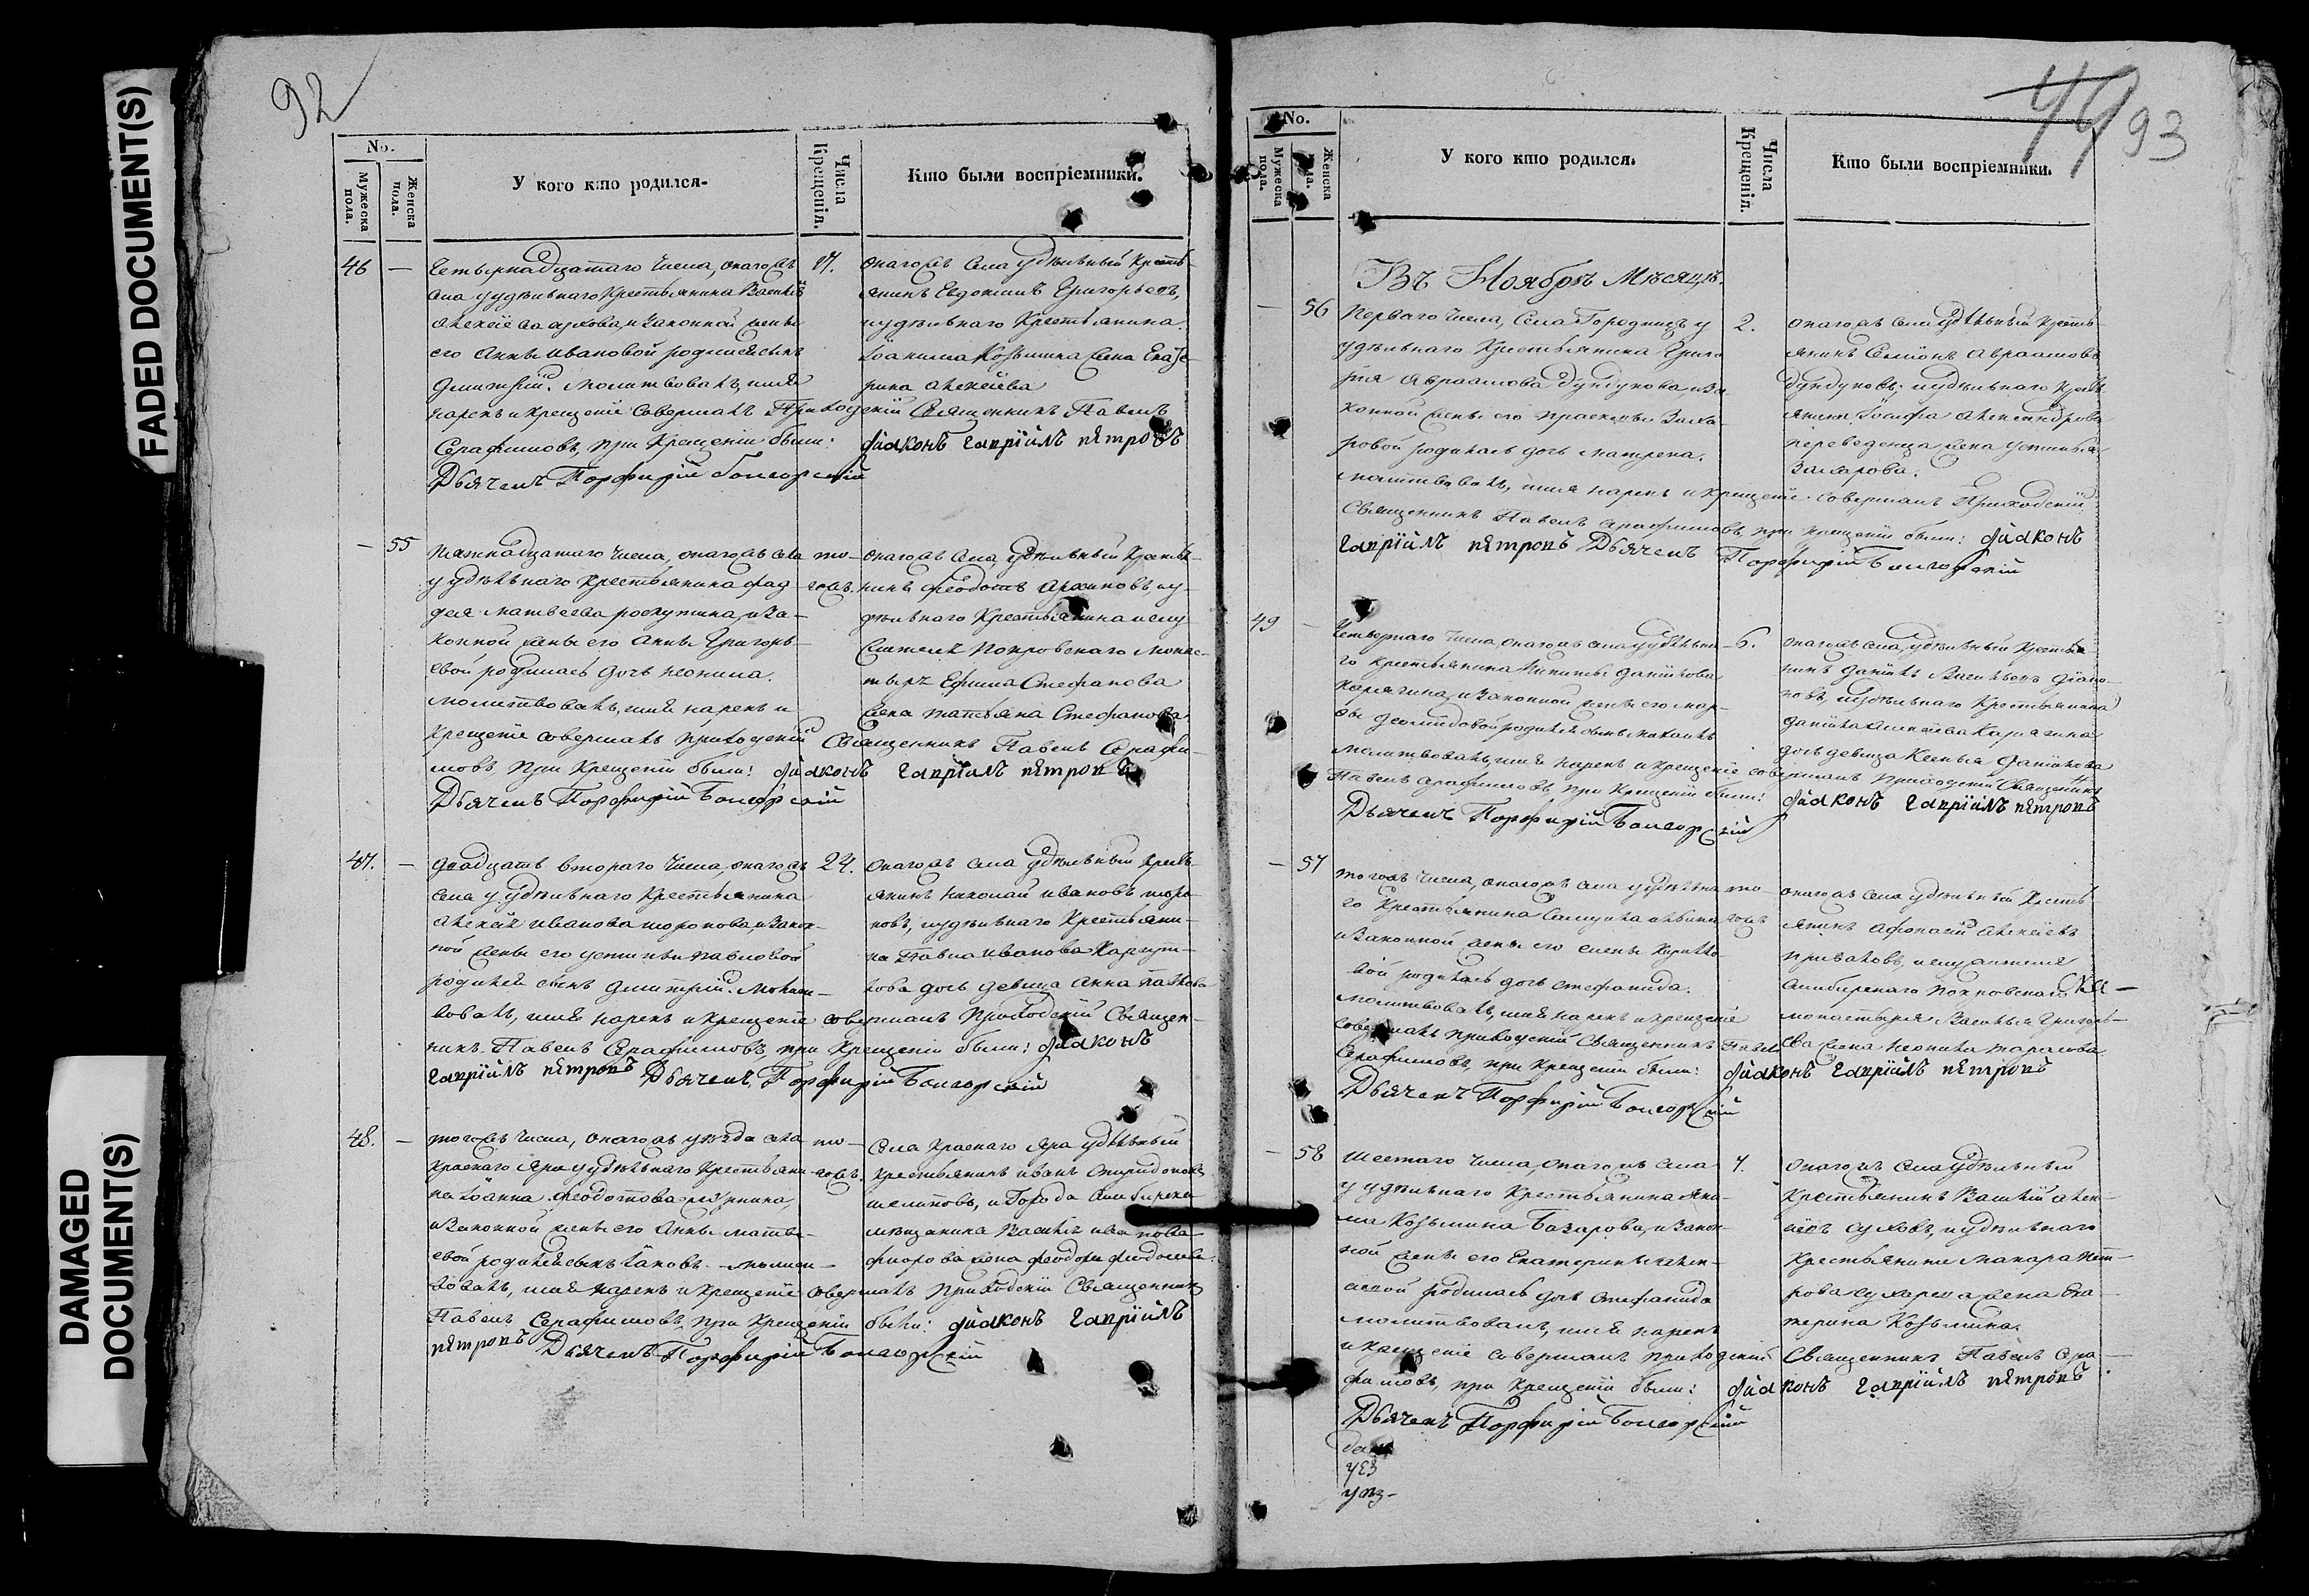 FADED DOCUMENT(S)
DAMAGED
DOCUMENT(S)
92
No.
Мужеска пола.
Женска пола.
У кого кто родился.
Числа Крещенія.
Кто были воспріемники.
46 —
Четырнадцатаго числа, онагожъ
села у удѣльнаго крестьянина Василія
Алексѣева и законной жены
его Анны Ивановой родился сынъ
Дмитрій. Молитвовалъ, имя
нарекъ и крещеніе совершалъ Приходскій Священникъ Павелъ
Серафимовъ, при крещеніи были: діаконъ гавріилъ пѣтровъ
Дьячекъ Порфирій
17.
онагожъ села удѣльный кресть-
янинъ Евдокимъ Григорьевъ,
и удѣльнаго крестьянина
Іоакима Козьмина жена Екате-
рина Алексѣева
— 55
пятнадцатаго числа, онагожъ села
у удѣльнаго крестьянина Фад-
дея Матвеева и за-
конной жены его Анны Григорь-
евой родилась дочь Неонила.
молитвовалъ, имя нарекъ и
крещеніе совершалъ приходскій Священникъ Павелъ Серафи-
мовъ, при крещеніи были: діаконъ гавріилъ пѣтровъ
Дьячекъ Порфирій
то-
гожъ.
онагожъ села, удѣльный кресть-
нинъ Феодотъ и у-
дѣльнаго крестьянина
Покровскаго мона-
Ефима Стефанова
жена Татьяна Стефанова
47. —
двадцать втораго числа, онагожъ
села у удѣльнаго крестьянина
Алексѣя Иванова и закон-
ной жены его Устиньи Павловой
родился сынъ Дмитрій. Молит-
вовалъ, имя нарекъ и крещеніе совершалъ приходскій Священ-
никъ Павелъ Серафимовъ, при крещеніи были: діаконъ
гавріилъ пѣтровъ Дьячекъ Порфирій
24.
онагожъ села удѣльный кресть-
янинъ Николай Ивановъ
и удѣльнаго крестьяни-
на Павла Иванова
дочь девица Анна Павлова
48. —
тогожъ числа, онагожъ уѣзда села
Краснаго Яра у удѣльнаго крестьяни-
на Іоанна Феодотова
и законной жены его Анны Матве-
евой родился сынъ Іаковъ. молит-
вовалъ, имя нарекъ и крещеніе совершалъ приходскій Священникъ
Павелъ Серафимовъ, при крещеніи были: діаконъ гавріилъ
пѣтровъ Дьячекъ Порфирій
то-
гожъ.
села Краснаго Яра удѣльный
крестьянинъ Иванъ Спиридоновъ
и города Симбирска
мѣщанина Василія Иванова
жена Феодора
44 93
No.
Мужеска пола.
Женска пола.
У кого кто родился.
Числа Крещенія.
Кто были воспріемники.
Въ Ноябрѣ Мѣсяцѣ.
— 56
Перваго числа, Села Городищъ у
удѣльнаго крестьянина Григо-
рія Авраамова Дундукова, и за-
конной жены его Праскевы Заха-
ровой родилась дочь Матрена.
молитвовалъ, имя нарекъ и крещеніе совершалъ Приходскій
Священникъ Павелъ Серафимовъ, при крещеніи были: діаконъ
гавріилъ пѣтровъ Дьячекъ Порфирій
2.
онагожъ села удѣльный кресть-
янинъ Семіонъ Авраамовъ
Дундуковъ; и удѣльнаго кресть-
янина Іосифа Александрова
переведенца жена Устинья
Захарова.
49 —
Четвертаго числа, онагожъ села у удѣльна-
го крестьянина Никиты Данилова
Карягина, и законной жены его Мар-
Деомидовой родился сынъ Михаилъ
молитвовалъ, имя нарекъ и крещеніе совершалъ приходскій Священникъ
Павелъ Серафимовъ, при крещеніи были: діаконъ гавріилъ пѣтровъ
Дьячекъ Порфирій
6.
онагожъ села, удѣльный крестья-
нинъ Данилъ Васильевъ
и удѣльнаго крестьянина
Данила Карягина
дочь девица Ксенья Данилова
— 57
тогожъ числа, онагожъ села у удѣльна-
го крестьянина Самуила
и законной жены его Елены Кирилло-
вой родилась дочь Стефанида.
молитвовалъ, имя нарекъ и крещеніе
совершалъ приходскій Священникъ Павелъ
Серафимовъ, при крещеніи были: діаконъ гавріилъ пѣтровъ
Дьячекъ Порфирій
то-
гожъ
онагожъ села удѣльный кресть-
янинъ Афонасій Алексѣевъ
Приваловъ, и служителя
Симбирскаго Покровскаго
монастыря Василья Григорь-
ева жена Неонила Тарасова
— 58
Шестаго числа, онагожъ села
у удѣльнаго крестьянина Яки-
ма Козьмина Базарова, и закон-
ной жены его Екатерины Алек-
родилась дочь Стефанида
молитвовалъ, имя нарекъ
и крещеніе совершалъ приходскій Священникъ Павелъ Сера-
фимовъ, при крещеніи были: діаконъ гавріилъ пѣтровъ
Дьячекъ Порфирій
7.
онагожъ села удѣльный
крестьянинъ Василій Алек-
и удѣльнаго
крестьянина Макара Пет-
рова жена Ека-
терина Козьмина.